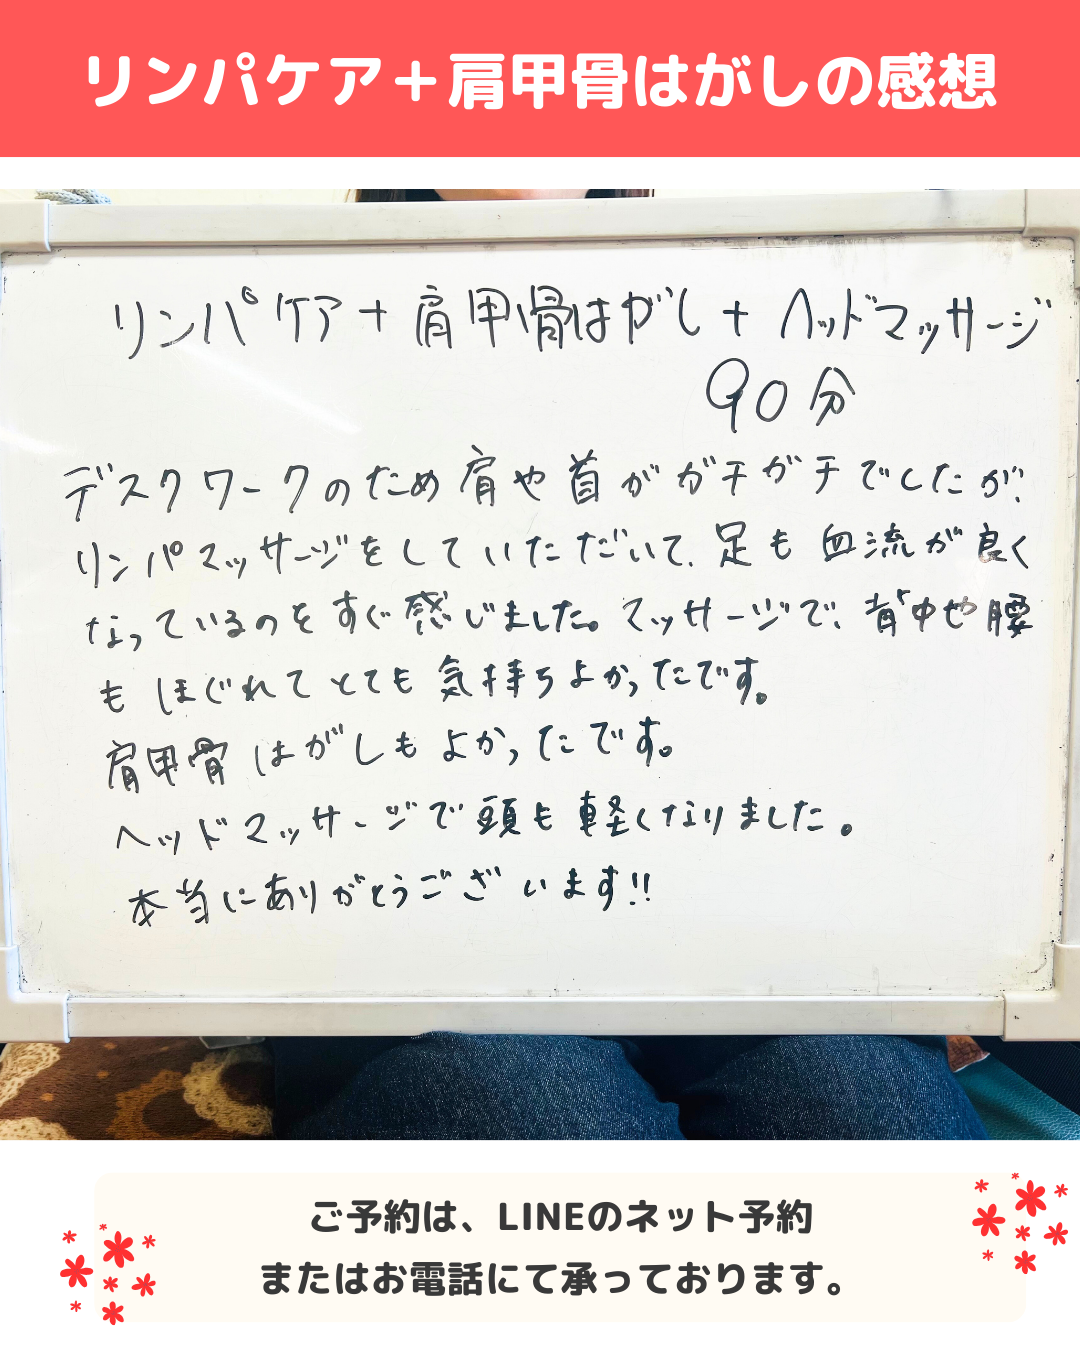 リンパケア＋肩甲骨はがしの感想
リンパケア＋肩甲骨はがし＋ヘッドマッサージ
90分
デスクワークのため肩や首がガチガチでしたが、
リンパマッサージをしていただいて、足も血流が良く
なっているのをすぐ感じました。マッサージで、背中や腰
もほぐれてとても気持ちよかったです。
肩甲骨はがしもよかったです。
ヘッドマッサージで頭も軽くなりました。
本当にありがとうございます!!
ご予約は、LINEのネット予約
またはお電話にて承っております。